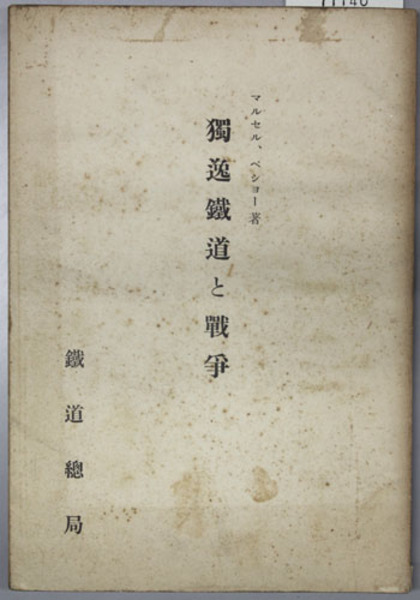 マルセル、ペショー著
獨逸鐵道と戰爭
鐵道總局